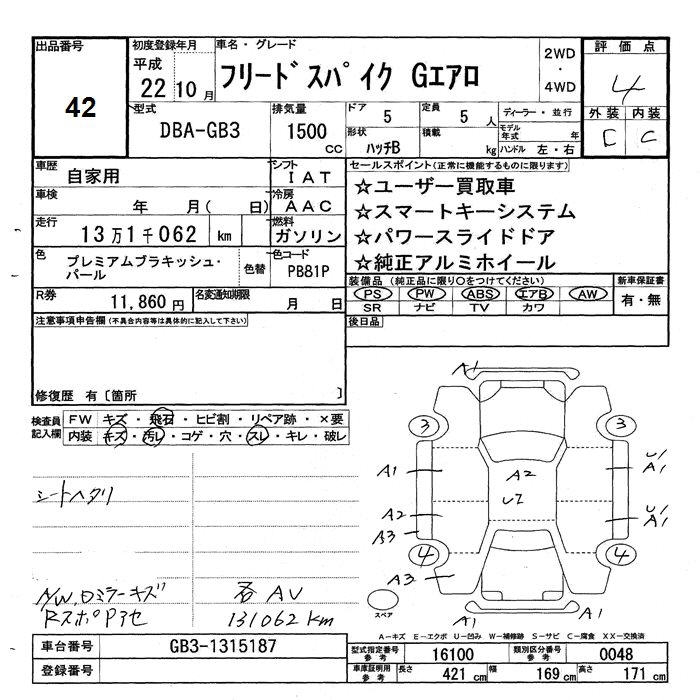 出品番号
42
初度登録年月
平成
22 10月
車名・グレード
フリードスパイク Gエアロ
2WD
・
4WD
評価点
4
外装 内装
C C
型式
DBA-GB3
排気量
1500
CC
ドア
5
定員
5 人
ディーラー・並行
モデル年式 年
形状
ハッチB
積載
kg
ハンドル 左・右
車歴
自家用
シフト
IAT
車検
年 月( 日)
冷房
AAC
走行
13万1千062 km
燃料
ガソリン
色
プレミアムブラキッシュ・
パール
色替
色コード
PB81P
R券
11,860円
名変通知期限
月 日
セールスポイント(正常に機能するものに限ります)
☆ユーザー買取車
☆スマートキーシステム
☆パワースライドドア
☆純正アルミホイール
装備品(純正品に限り○をつけてください)
新車保証書
PS PW ABS エアB AW
SR ナビ TV カワ
有・無
後日品
注意事項申告欄(不具合内容等は具体的に記入して下さい)
修復歴 有〔箇所 〕
検査員
記入欄
FW キズ・飛石・ヒビ割・リペア跡・×要
内装 キズ・汚レ・コゲ・穴・スレ・キレ・破レ
シートヘタリ
N/W,ロミラーキズ
RスポPアセ
各AU
131062km
A1
3
3
A1
A2
U1
A1
U1
A2
A3
U1
A1
4
4
A3
A1
A1
スペア
A-キズ E-エクボ U-凹み W-補修跡 S-サビ C-腐食 XX-交換済
車台番号
GB3-1315187
登録番号
型式指定番号
参考
16100
類別区分番号
参考
0048
車庫証明用
参考
長さ
421 cm
幅
169 cm
高さ
171 cm